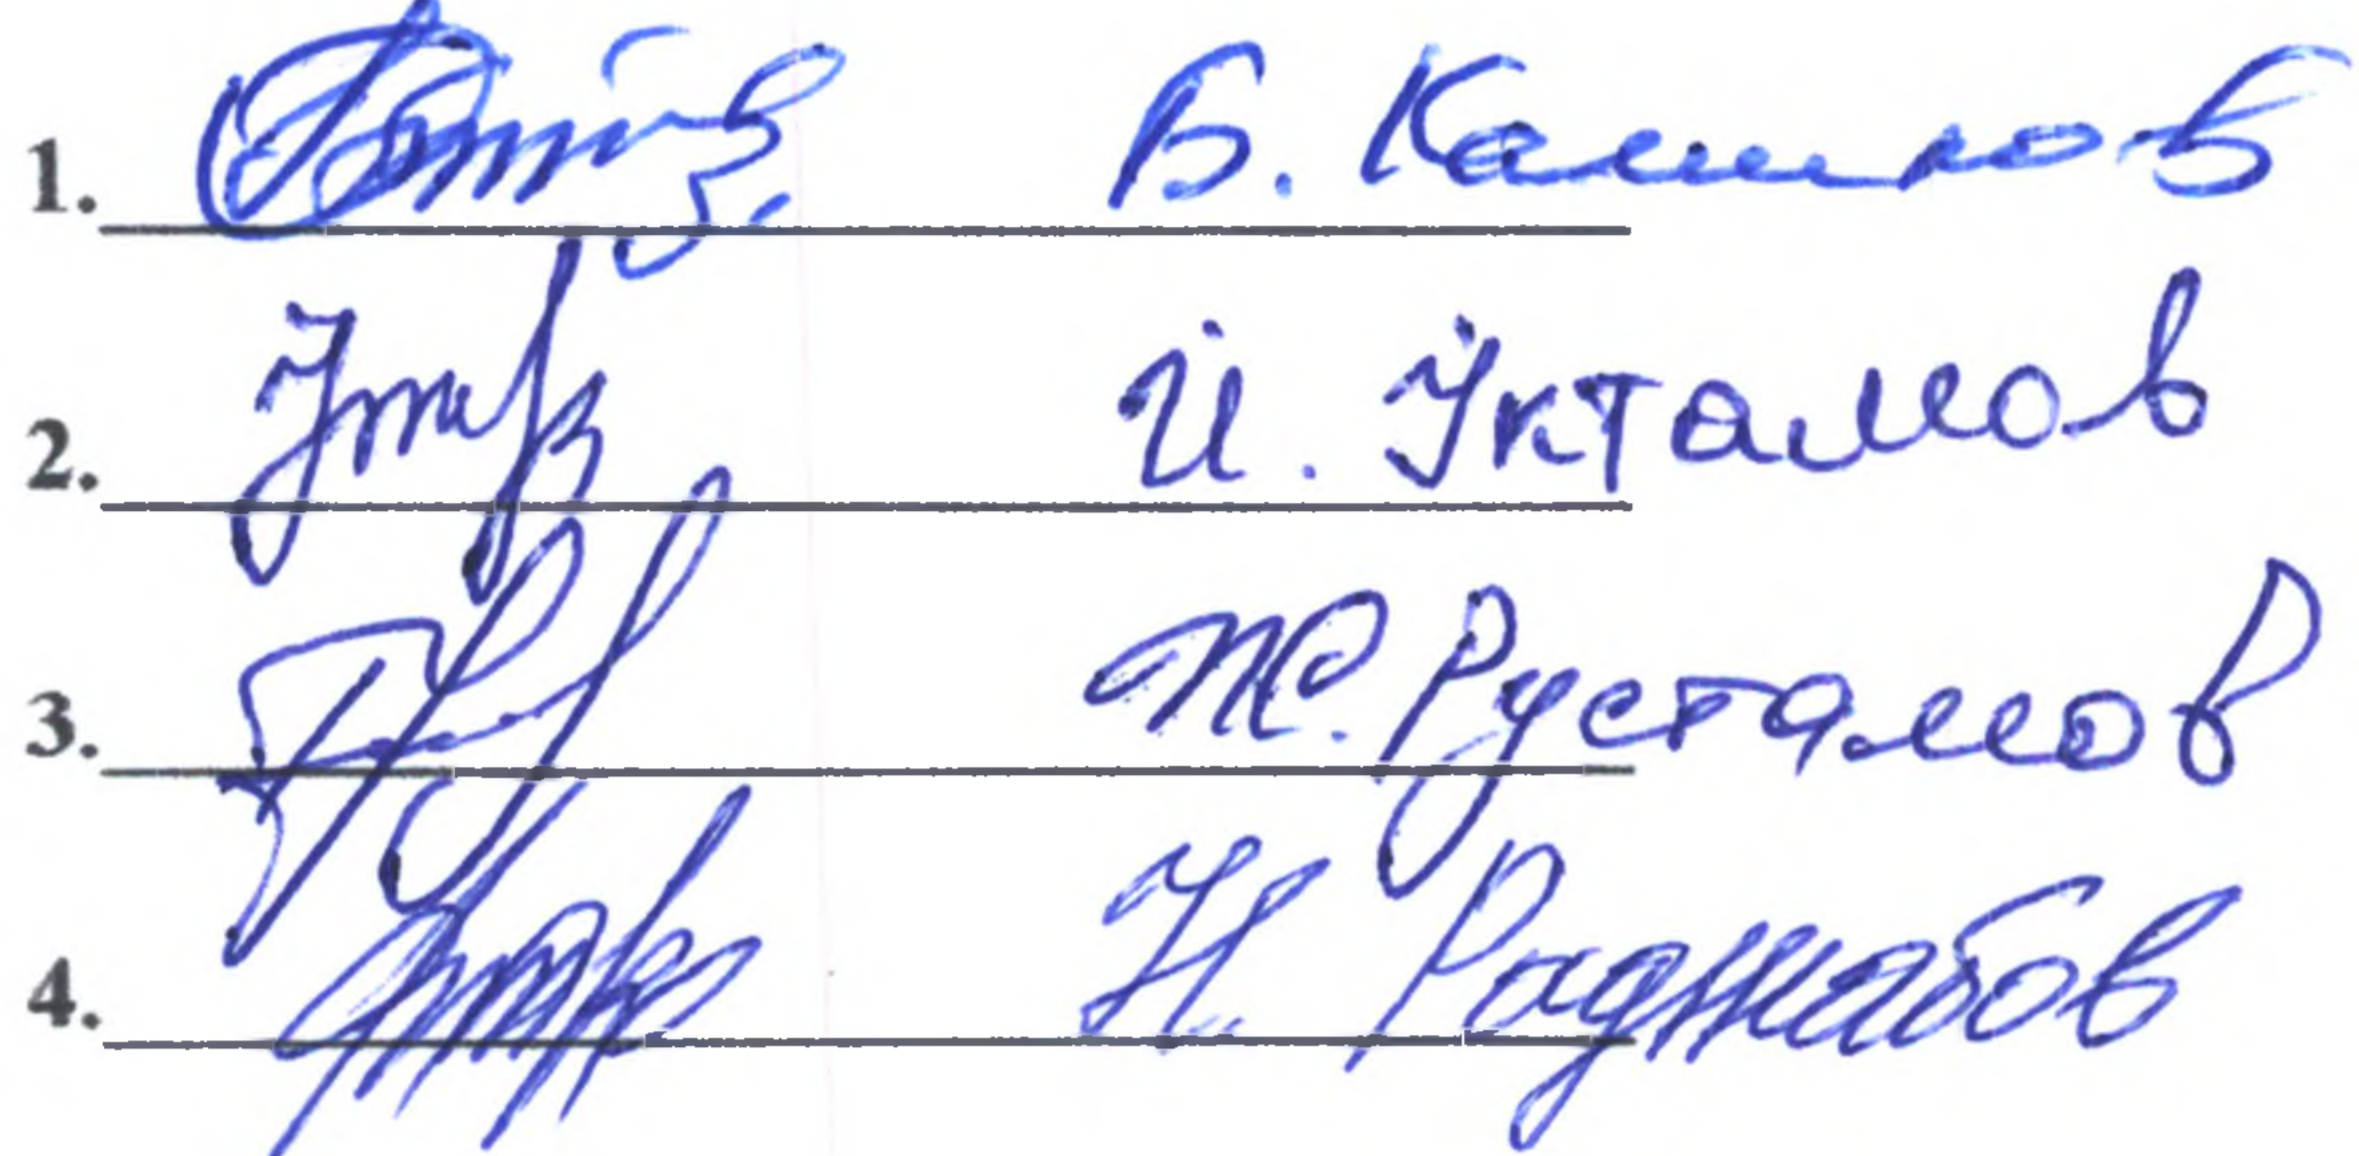 1. Б. Камилов
2. Й. Ўктамов
3. Ж. Рустамов
4. Н. Раджабов